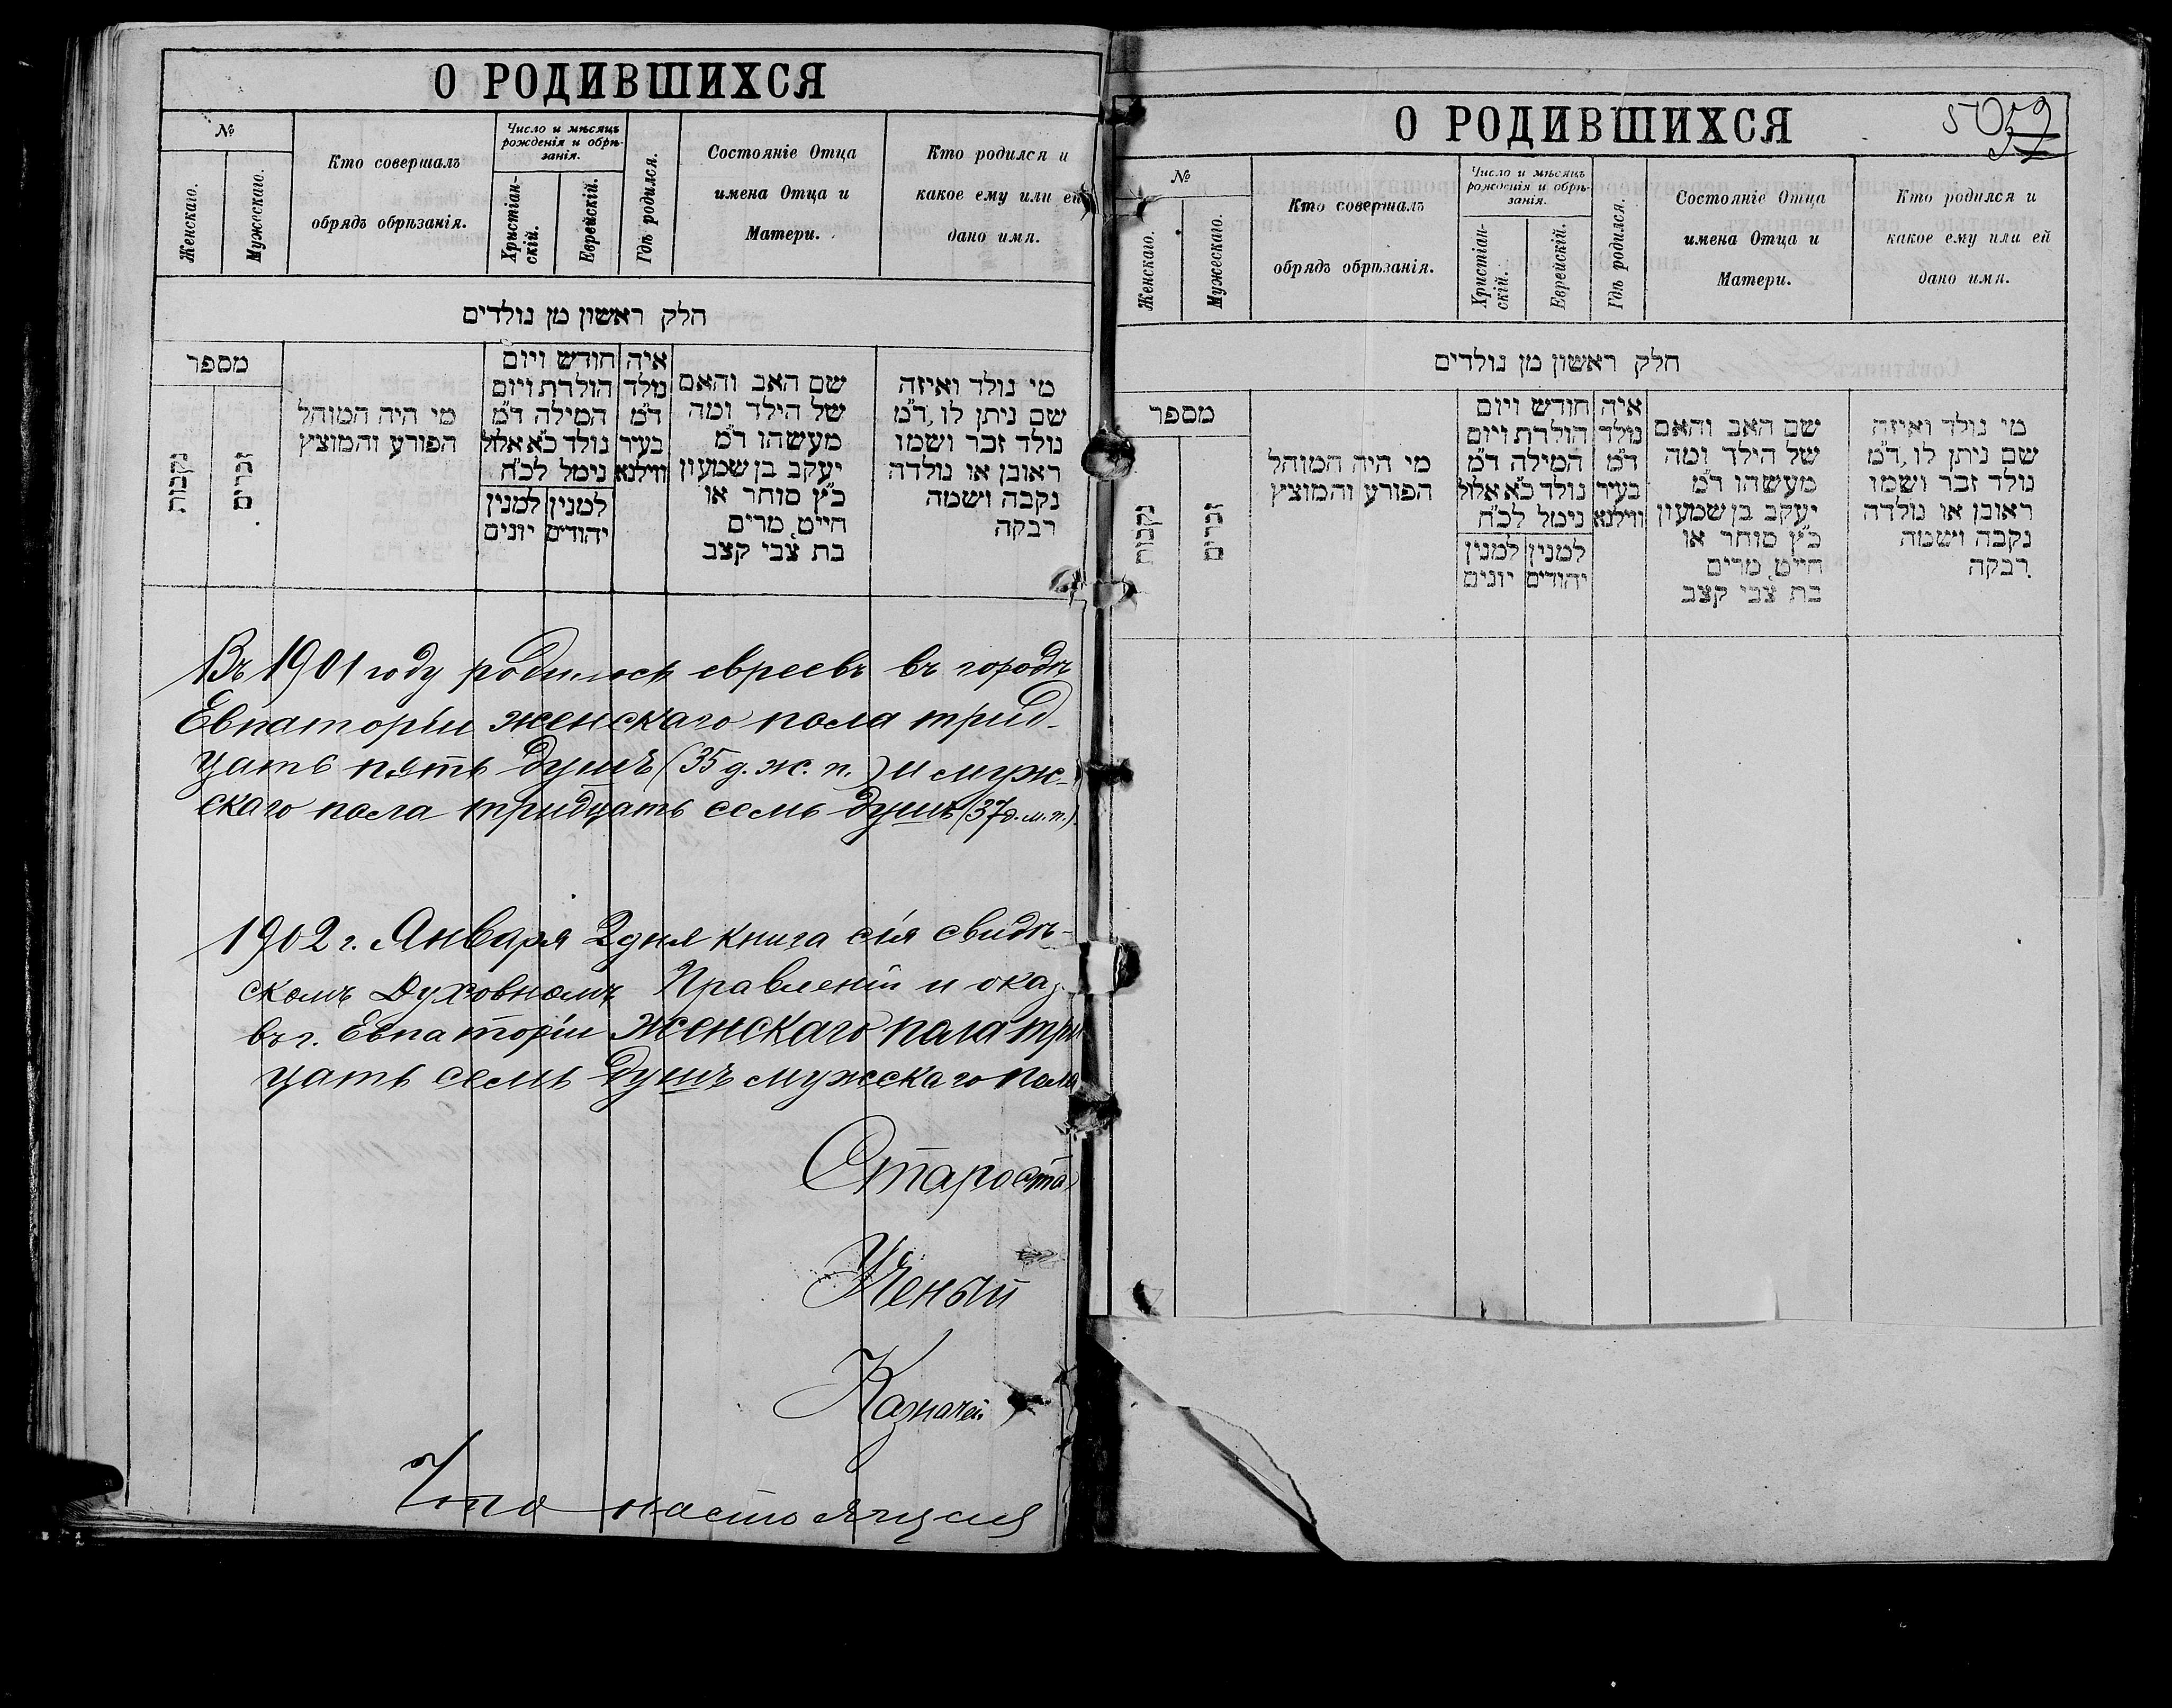 О РОДИВШИХСЯ
№
Женскаго.
Мужескаго.
Кто совершалъ
обрядъ обрѣзанія.
Число и мѣсяцъ
рожденія и обрѣ-
занія.
Христіан-
скій.
Еврейскій.
Гдѣ родился.
Состояніе Отца
имена Отца и
Матери.
Кто родился и
какое ему или ей
дано имя.
חלק ראשון מן נולדים
מספר
נקבות
זכרים
מי היה המוהל
הפורע והמוצץ
חודש ויום
הולדת ויום
המילה ד"מ
נולד כ"א אלול
נימל לכ"ח
למנין
יונים
למנין
יהודים
איה
נולד
ד"מ
בעיר
ווילנא
שם האב והאם
של הילד ומה
מעשהו ד"מ
יעקב בן שמעון
כ"ץ סוחר או
חייט מרים
בת צבי קצב
מי נולד ואיזה
שם ניתן לו ד"מ
נולד זכר ושמו
ראובן או נולדה
נקבה ושמה
רבקה
Въ 1901 году родилось евреевъ въ городѣ
Евпаторіи женскаго пола трид-
цать пять душъ (35 д. ж. п.) и муж-
скаго пола тридцать семь душъ (37 д. м. п.)
1902 г. Января 2 дня книга сія свидѣ-
скомъ Духовномъ Правленіи и оказ
въ г. Евпаторіи женскаго пола три
цать семь душъ мужескаго пола
Староста
Ученый
Казначей
Что настоящая
О РОДИВШИХСЯ
59
№
Женскаго.
Мужескаго.
Кто совершалъ
обрядъ обрѣзанія.
Число и мѣсяцъ
рожденія и обрѣ-
занія.
Христіан-
скій.
Еврейскій.
Гдѣ родился.
Состояніе Отца
имена Отца и
Матери.
Кто родился и
какое ему или ей
дано имя.
חלק ראשון מן נולדים
מספר
נקבות
זכרים
מי היה המוהל
הפורע והמוצץ
חודש ויום
הולדת ויום
המילה ד"מ
נולד כ"א אלול
נימל לכ"ח
למנין
יונים
למנין
יהודים
איה
נולד
ד"מ
בעיר
ווילנא
שם האב והאם
של הילד ומה
מעשהו ד"מ
יעקב בן שמעון
כ"ץ סוחר או
חייט מרים
בת צבי קצב
מי נולד ואיזה
שם ניתן לו ד"מ
נולד זכר ושמו
ראובן או נולדה
נקבה ושמה
רבקה